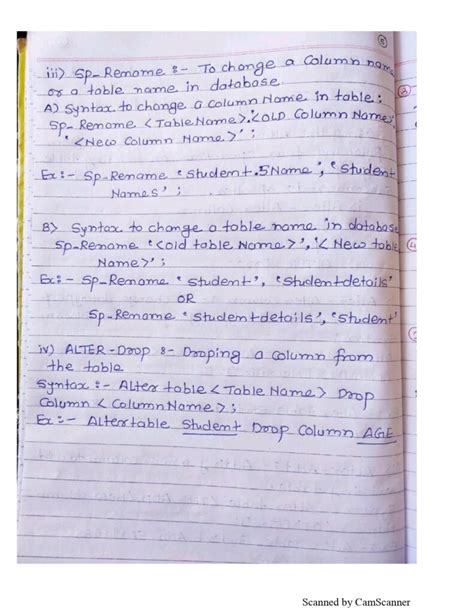 5
iii) Sp_Rename :- To change a column name
or a table name in database.
A) Syntax to change a column Name in table:
Sp_Rename <TableName>.<OLD Column Name>',
'<New Column Name>';
Ex:- Sp_Rename 'Student.SName', 'Student
Names';
B) Syntax to change a table name in database
Sp_Rename '<old table Name>', '< New table
Name>';
Ex:- Sp_Rename 'Student', 'Studentdetails'
OR
Sp_Rename 'Studentdetails', 'Student'
iv) ALTER-Drop :- Droping a column from
the table
Syntax :- Alter table <Table Name> Drop
Column <ColumnName>;
Ex:- Altertable Student Drop Column AGE
Scanned by CamScanner